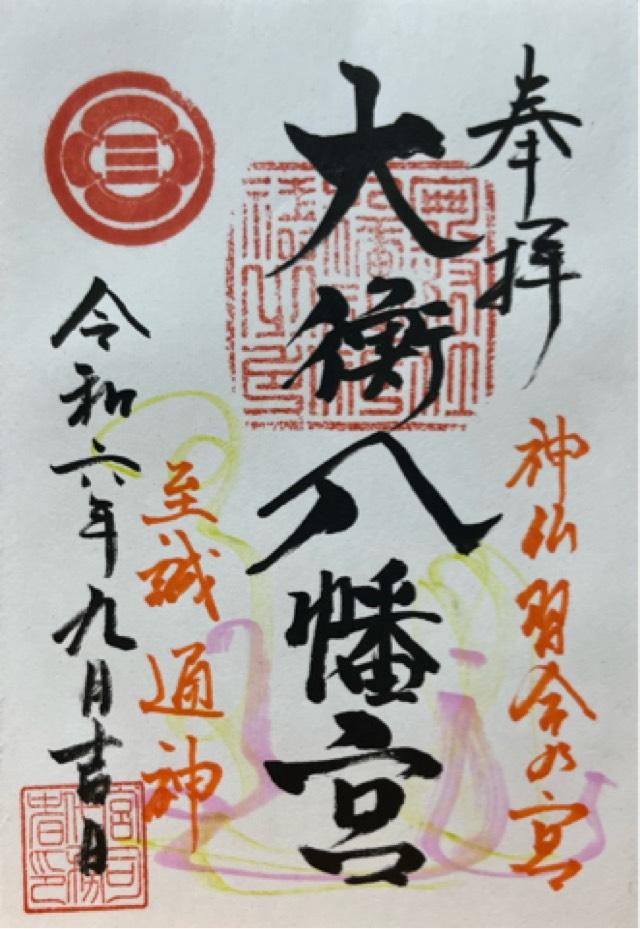 奉拝
神仏習合の宮
大衡八幡宮
至誠通神
令和六年九月吉日